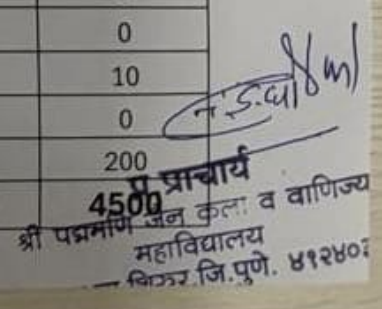 0
10
0
200
4500
प्र. प्राचार्य
श्री पद्ममणि जैन कला व वाणिज्य
महाविद्यालय
जि.पुणे.